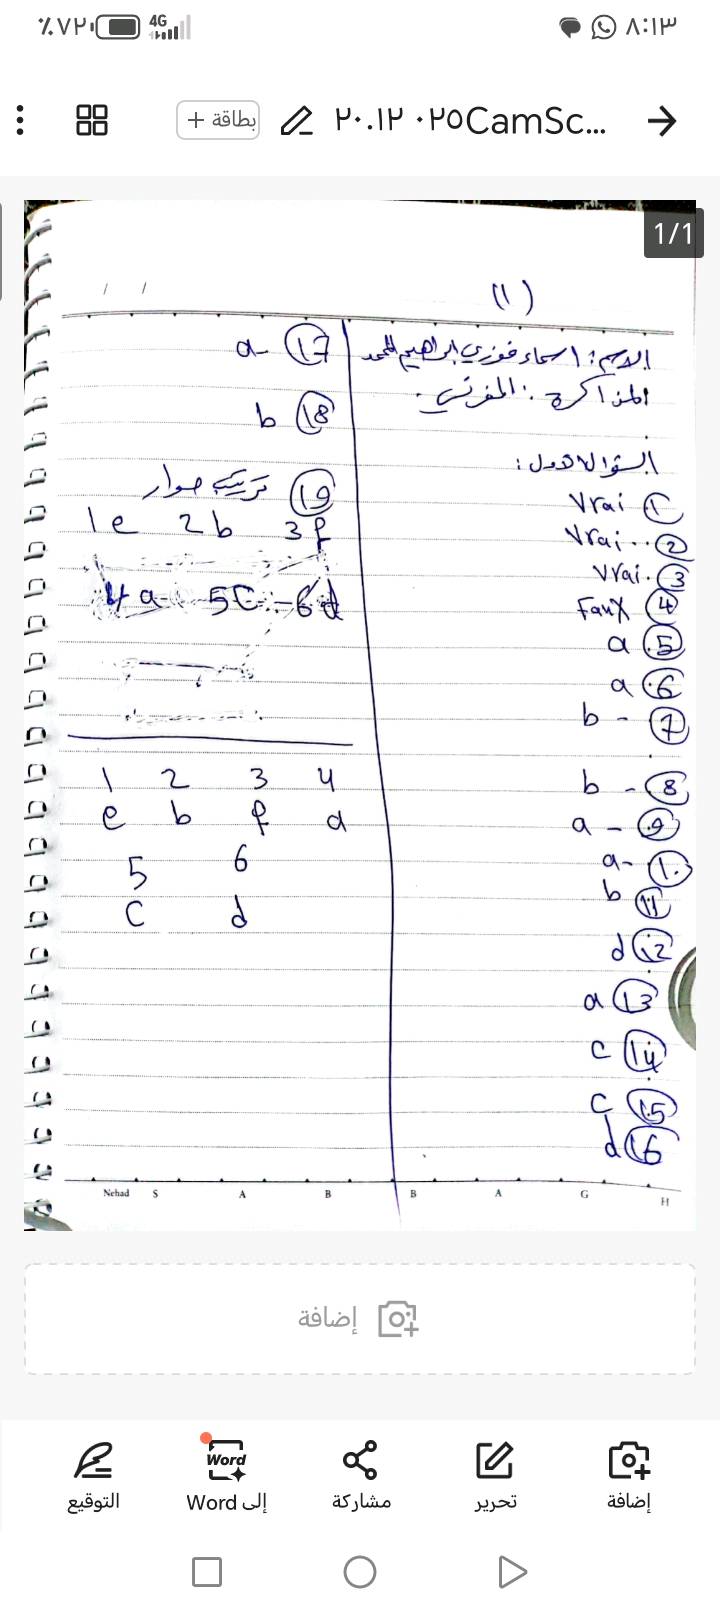 ٪٧٢ 4G ٨:١٣
+ بطاقة ٢٠.١٢ ٠٢٥CamSc...
1/1
/ /
(١)
الاسم: اسماء فوزي ابراهيم
المذاكرة:
السؤال الاول:
Vrai ①
Vrai.. ②
Vrai. ③
Faux ④
a 5
a 6
b - 7
b - 8
a - 9
a- ١٠
b 11
d 12
a 13
c 14
c 15
d 16
a- 17
b 18
19 ترتيب حوار
1e 2b 3f
4a 5C - 6d
1 2 3 4
e b f a
5 6
C d
Nehad S A B B A G H
إضافة
Word
التوقيع إلى Word مشاركة تحرير إضافة